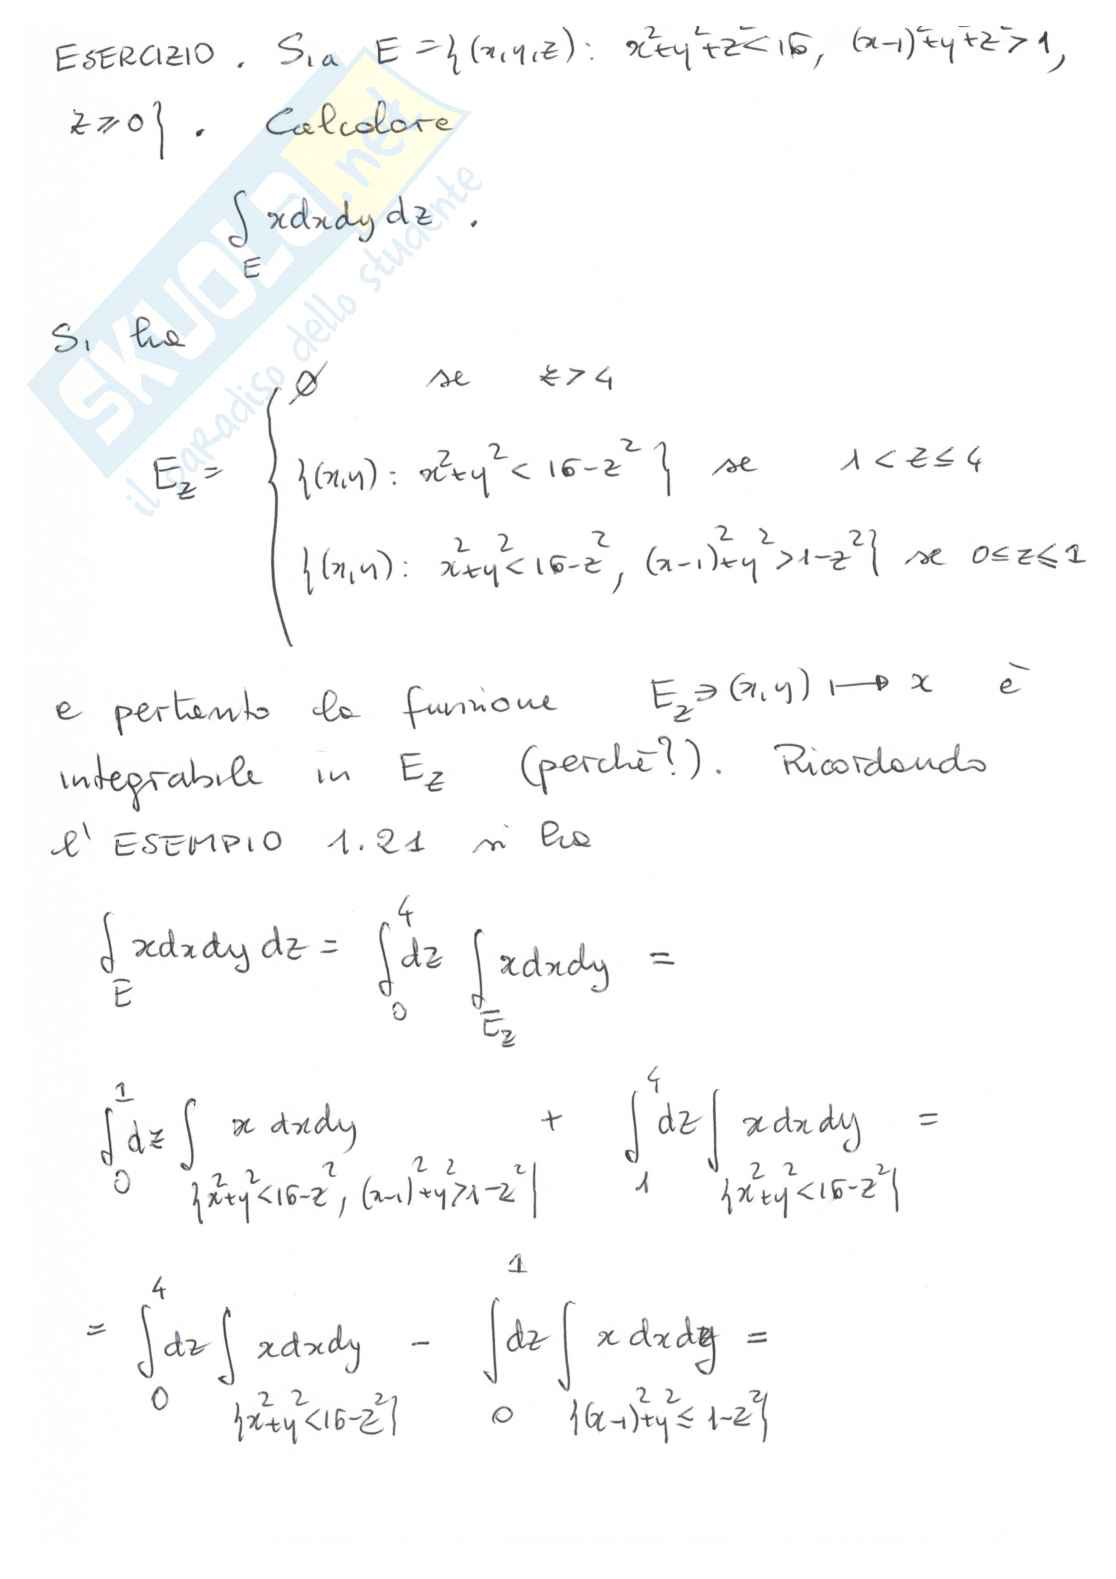 ESERCIZIO. Sia E = {(x,y,z): x²+y²+z²<16, (x-1)²+y²+z²>1,
z⩾0}. Calcolare
∫_E x dx dy dz.
Si ha
E_z = { ∅ se z>4
{(x,y): x²+y² < 16-z²} se 1<z≤4
{(x,y): x²+y²<16-z², (x-1)²+y²>1-z²} se 0≤z⩽1
e pertanto la funzione E_z∋(x,y) ↦ x è
integrabile in E_z (perchè?). Ricordando
l'ESEMPIO 1.21 si ha
∫_E x dx dy dz = ∫_0^4 dz ∫_{E_z} x dx dy =
∫_0^1 dz ∫_{{x²+y²<16-z², (x-1)²+y²>1-z²}} x dx dy + ∫_1^4 dz ∫_{{x²+y²<16-z²}} x dx dy =
= ∫_0^4 dz ∫_{{x²+y²<16-z²}} x dx dy - ∫_0^1 dz ∫_{{(x-1)²+y²≤1-z²}} x dx dy =
SKUOLA.net
il paradiso dello studente